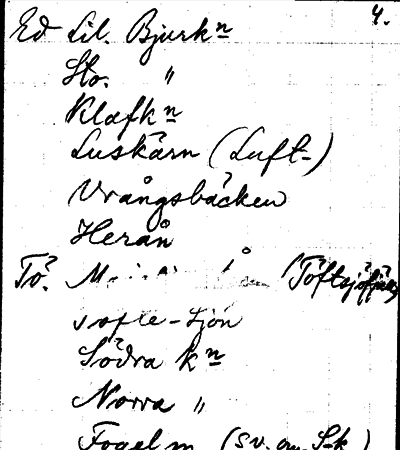 4.
Ed Lil. Bjurkn
Sto. "
Klafkn
Luskärn (Luft-)
Vrångsbäcken
Herån
Tö. (Töftsjöfjäll
Södra kn
Norra "
Fogelm (sv. om S-k)